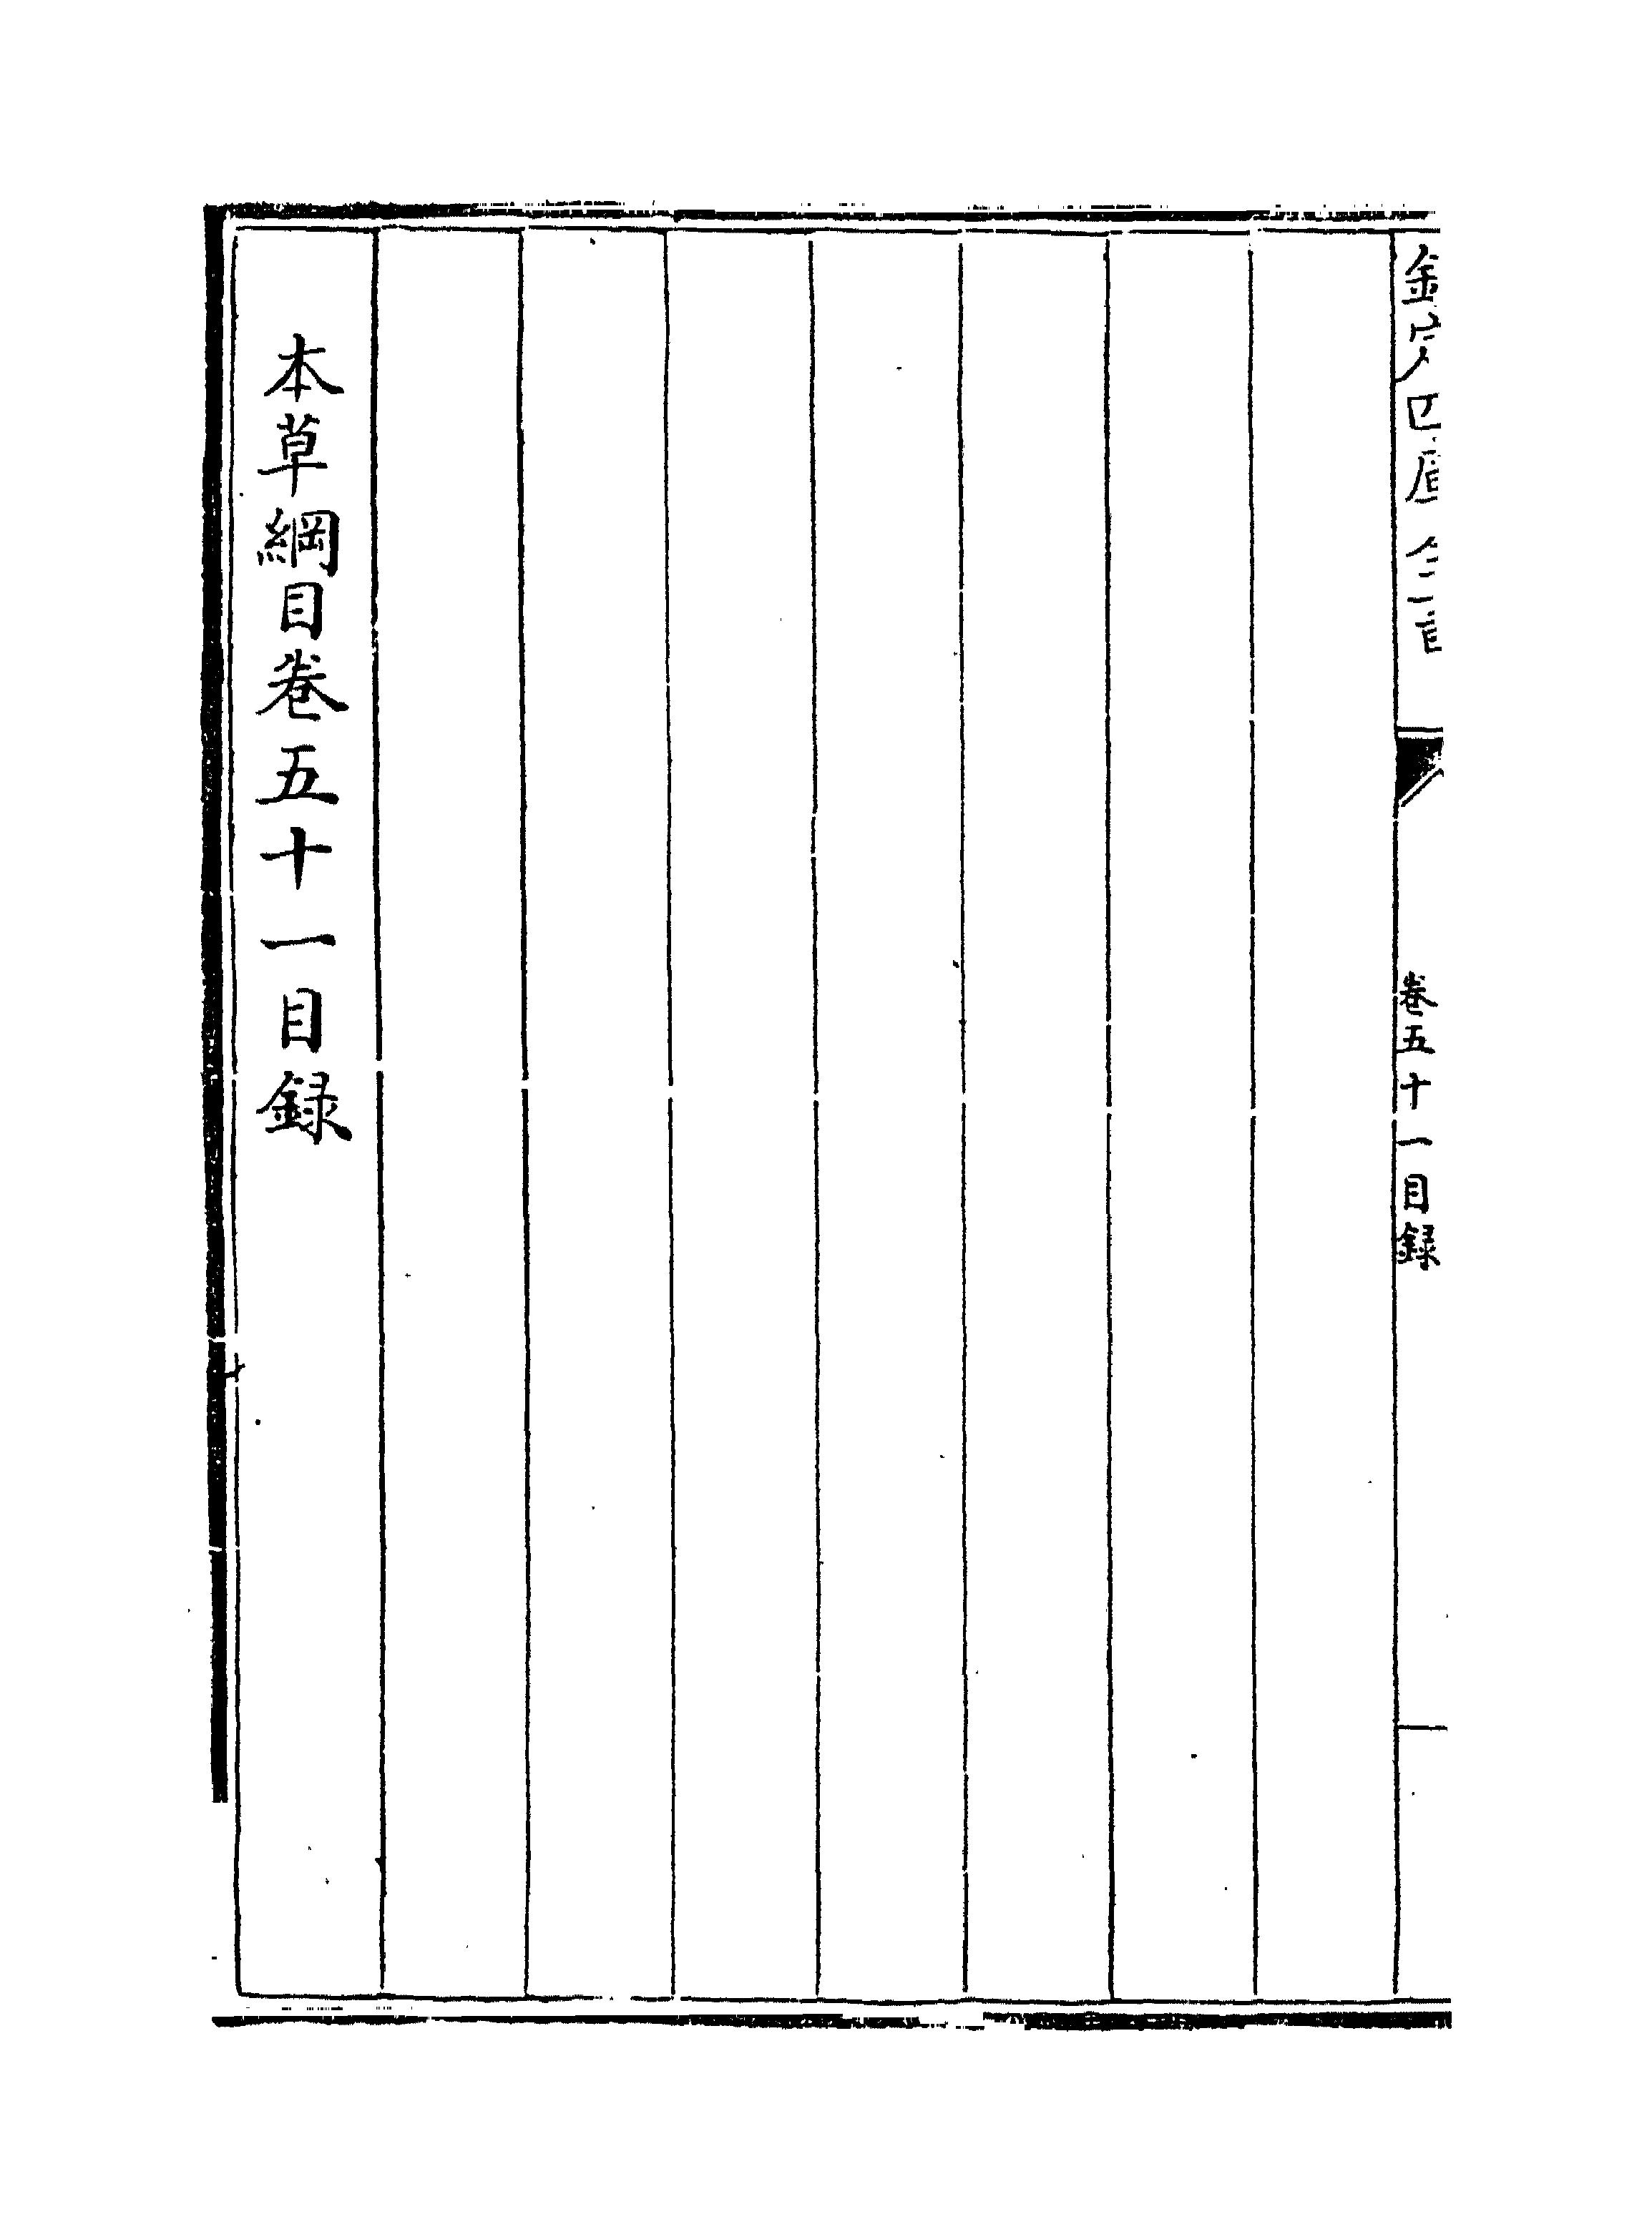 欽定四庫全書
卷五十一目録
本草綱目卷五十一目録